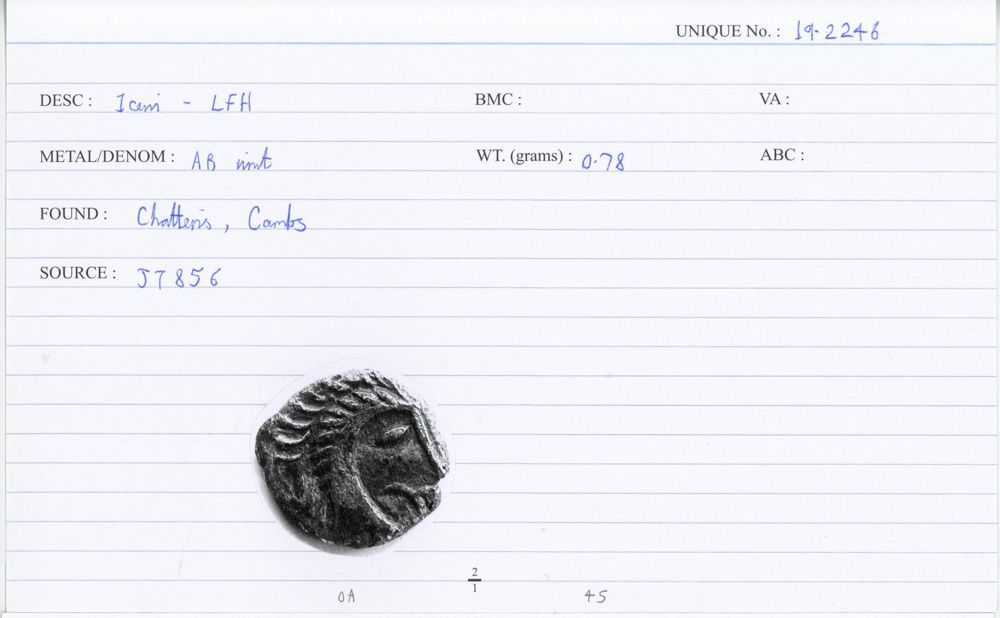 UNIQUE No. : 19.2246
DESC : Iceni - LFH BMC : VA :
METAL/DENOM : AR unit WT. (grams) : 0.78 ABC :
FOUND : Chatteris, Cambs
SOURCE : JT 856
2
1
OA 45